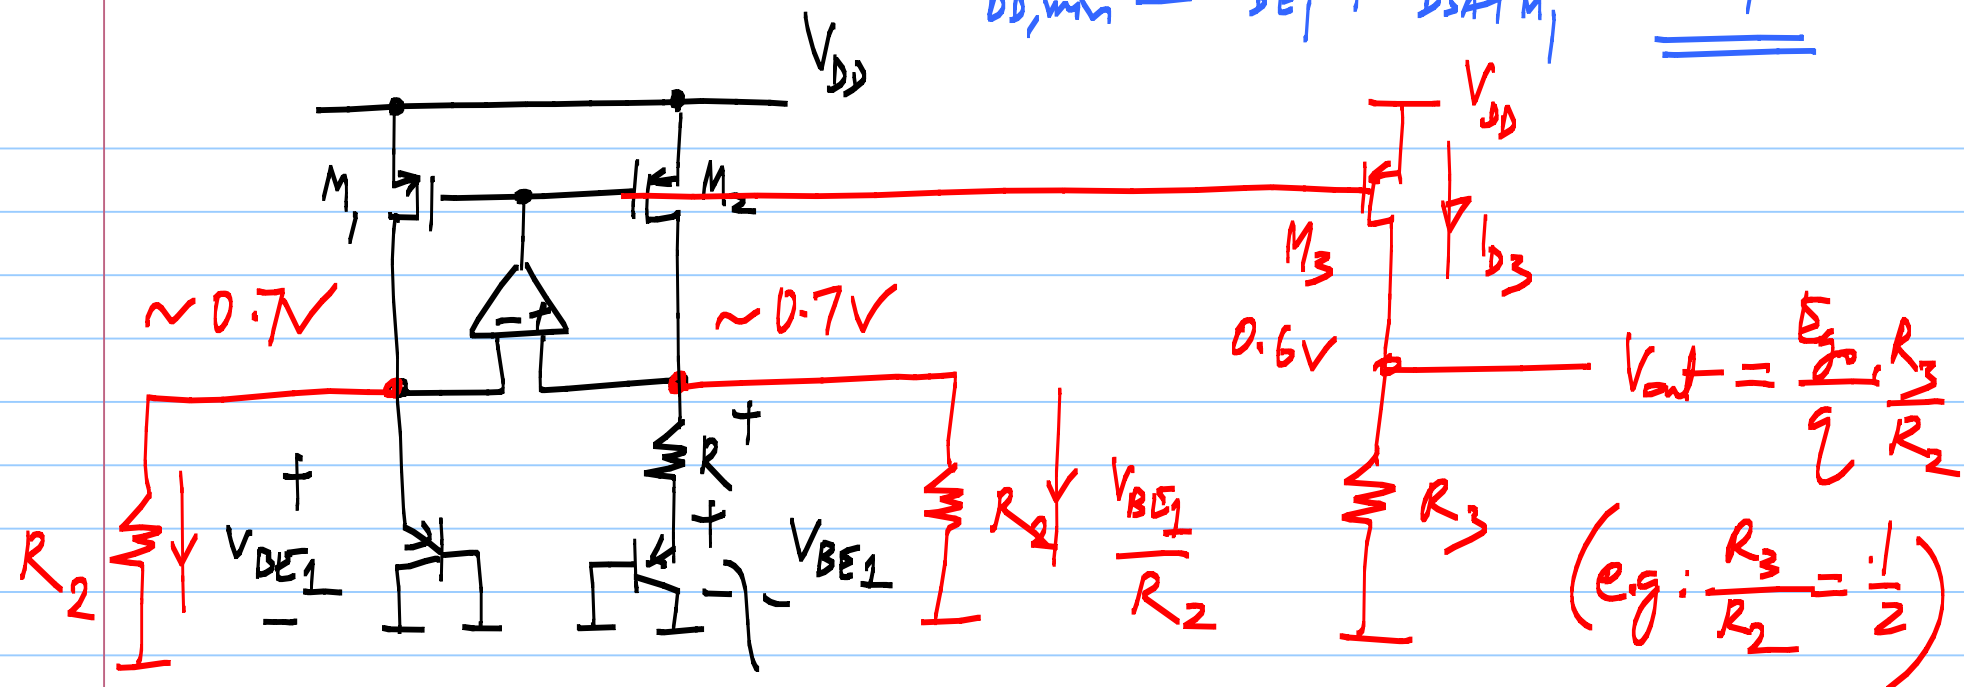 V_DD
V_DD
M_1
M_2
M_3
I_D3
~0.7V
- +
~0.7V
0.6V
V_out = E_go/q · R_3/R_2
+
V_BE1
-
R_2
+
R
+
V_BE1
-
-
R_2
V_BE1/R_2
R_3
(e.g: R_3/R_2 = 1/2)